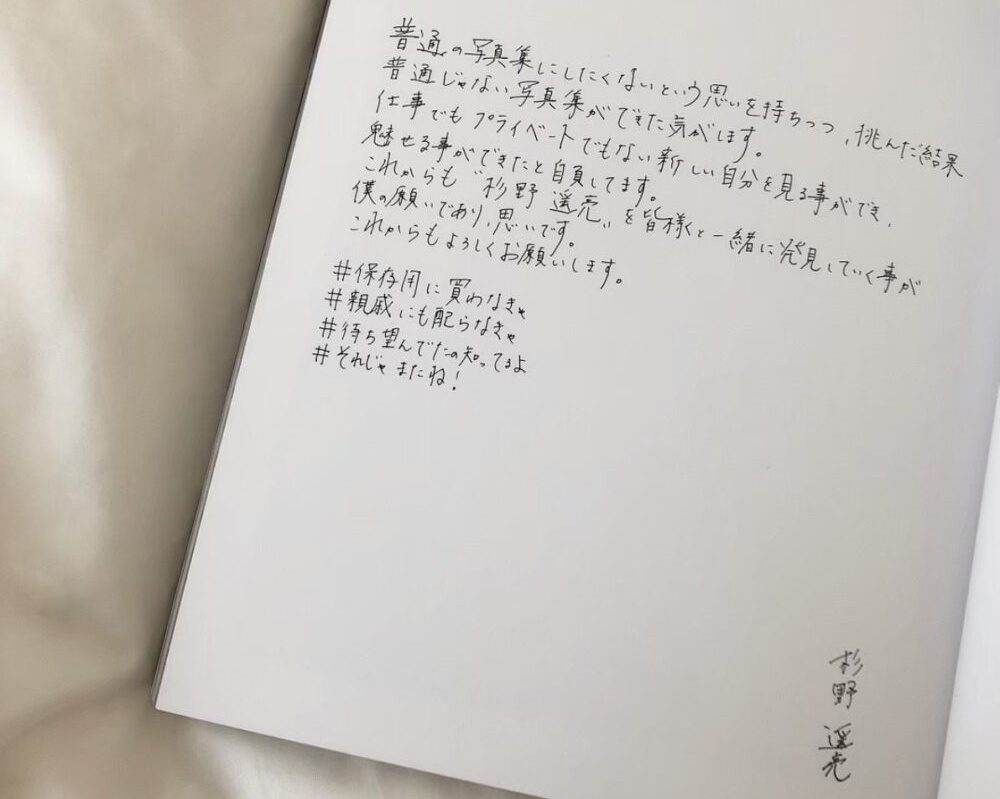 普通の写真集にしたくないという思いを持ちつつ、挑んだ結果
普通じゃない写真集ができた気がします。
仕事でもプライベートでもない新しい自分を見る事ができ、
魅せる事ができたと自負してます。
これからも"杉野 遥亮"を皆様と一緒に発見していく事が
僕の願いであり、思いです。
これからもよろしくお願いします。
#保存用に買わなきゃ
#親戚にも配らなきゃ
#待ち望んでたの知ってるよ
#それじゃまたね!
杉野 遥亮